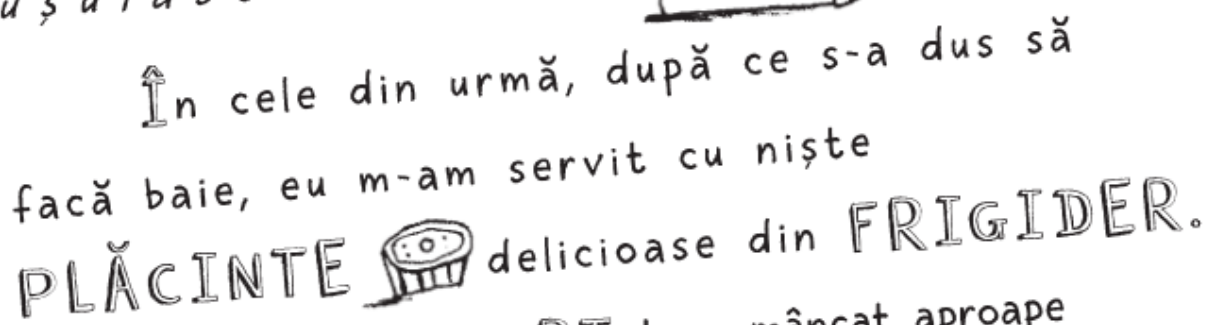 În cele din urmă, după ce s-a dus să
facă baie, eu m-am servit cu niște
PLĂCINTE delicioase din FRIGIDER.
mâncat aproape